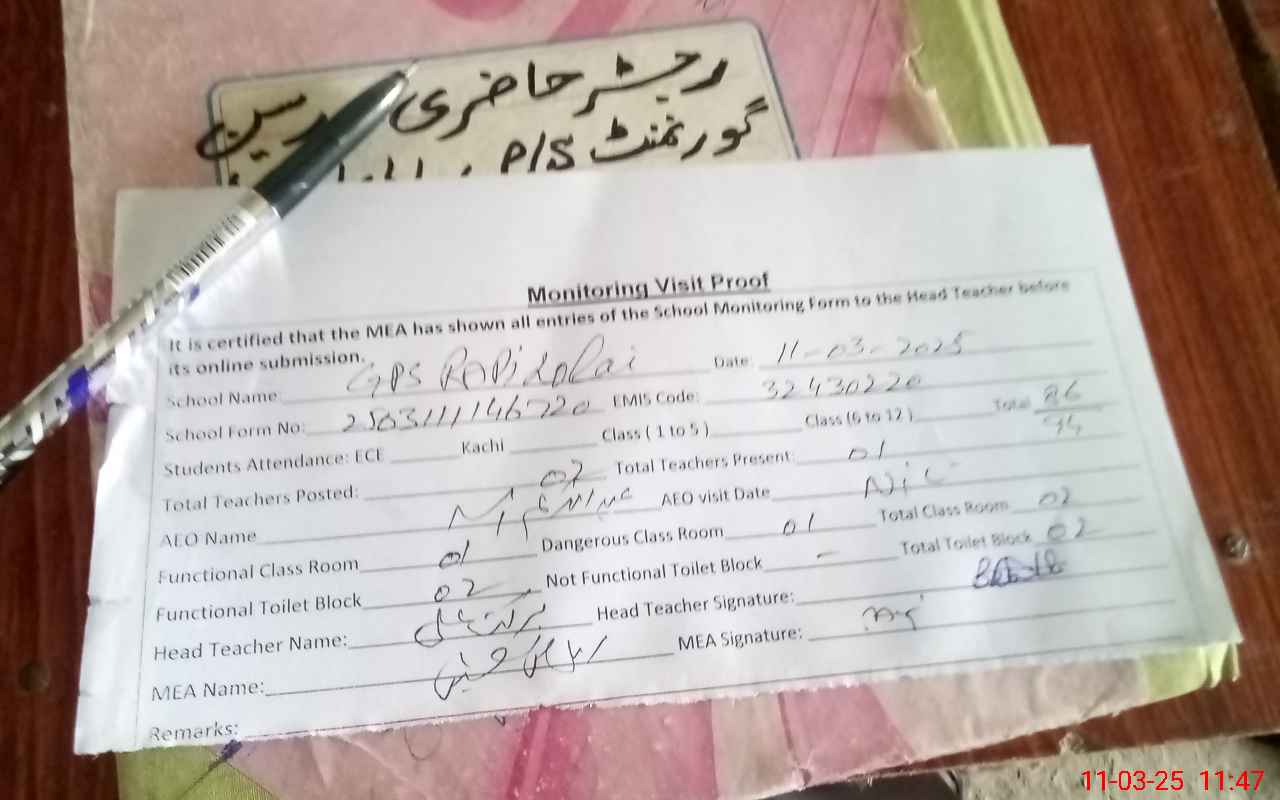 رجسٹر حاضری مدرسین
گورنمنٹ P/S
Monitoring Visit Proof
It is certified that the MEA has shown all entries of the School Monitoring Form to the Head Teacher before
its online submission.
School Name: GPS Date: 11-03-2025
School Form No: 2503111146720 EMIS Code: 32430220
Students Attendance: ECE Kachi Class ( 1 to 5 ) Class (6 to 12 ) Total 86
94
Total Teachers Posted: 02 Total Teachers Present: 01
AEO Name AEO visit Date Nil
Functional Class Room 01 Dangerous Class Room 01 Total Class Room 02
Functional Toilet Block 02 Not Functional Toilet Block - Total Toilet Block 02
Head Teacher Name: برکت علی Head Teacher Signature:
MEA Name: MEA Signature:
Remarks:
11-03-25 11:47